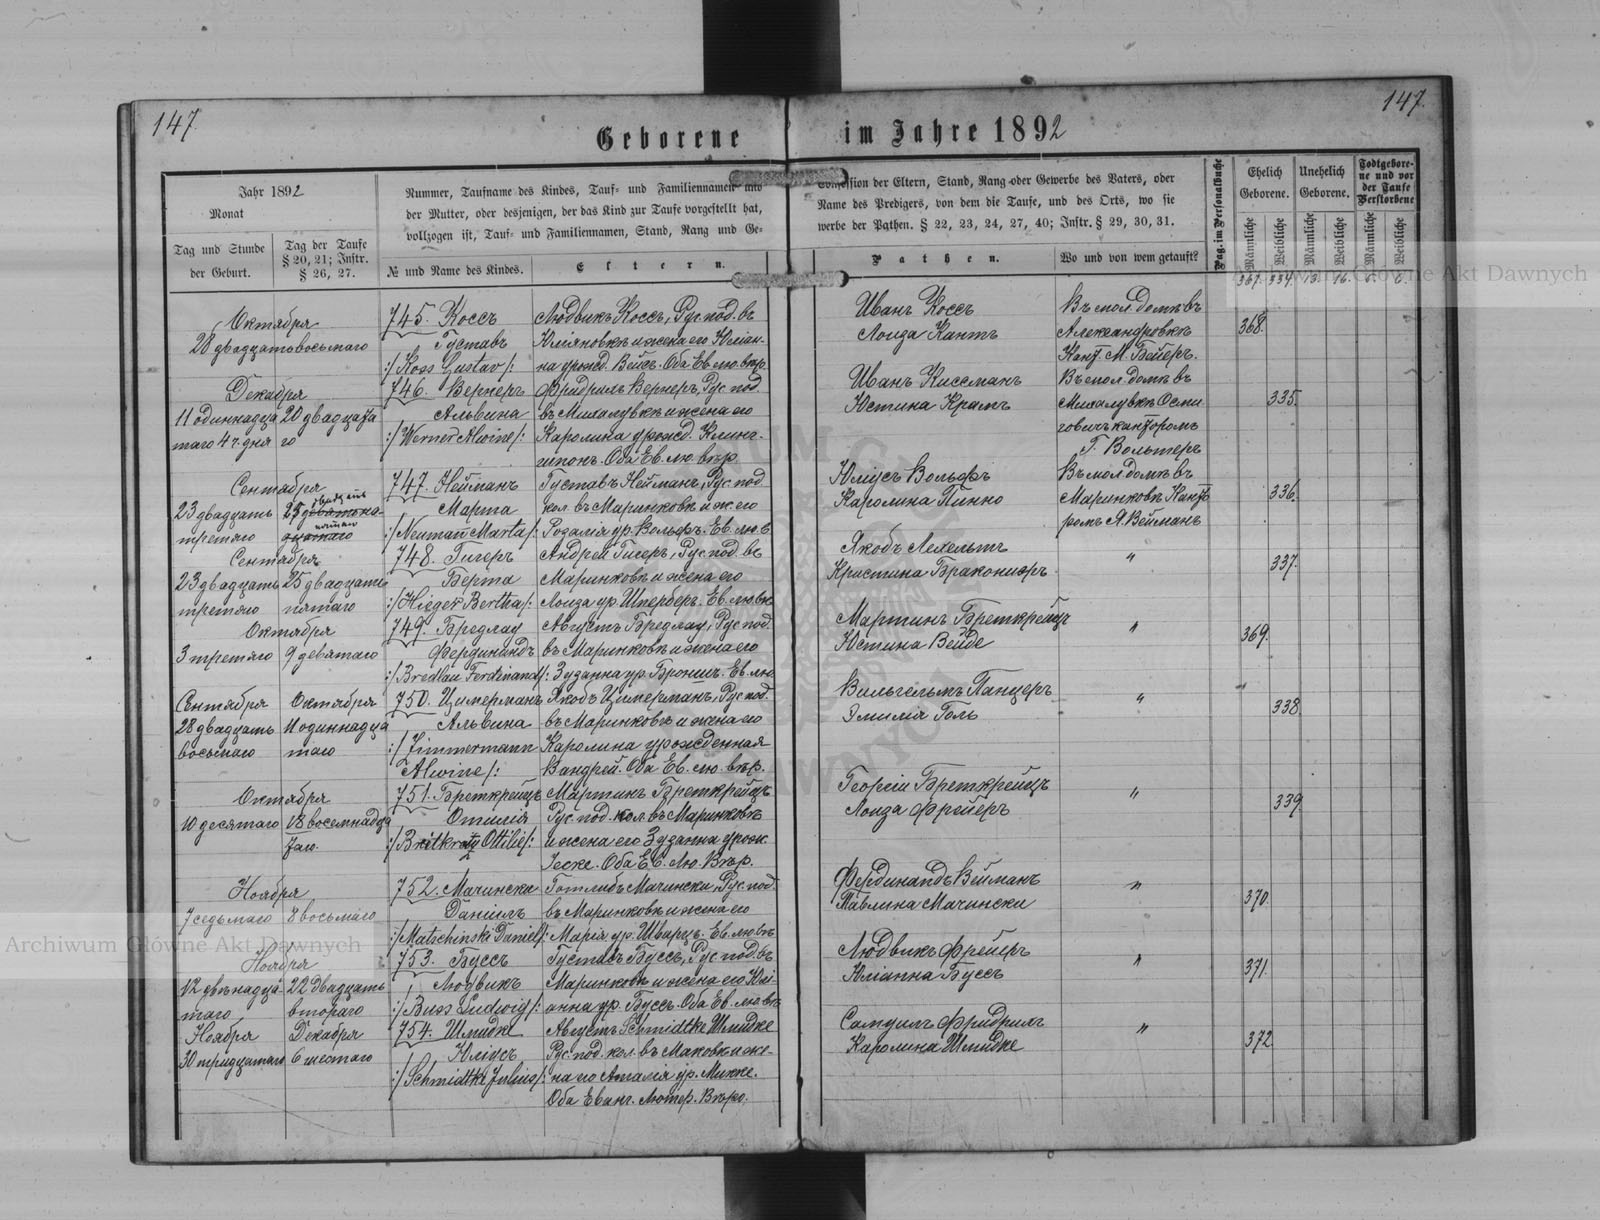 147.
147.
Geborene
im Jahre 1892
Jahr 1892
Monat
Tag und Stunde
der Geburt.
Tag der Taufe
§ 20, 21; Instr.
§ 26, 27.
Nummer, Taufname des Kindes, Tauf- und Familiennamen
der Mutter, oder desjenigen, der das Kind zur Taufe vorgestellt hat,
vollzogen ist, Tauf- und Familiennamen, Stand, Rang und Ge-
№ und Name des Kindes.
Eltern.
Confession der Eltern, Stand, Rang oder Gewerbe des Vaters, oder
Name des Predigers, von dem die Taufe, und des Orts, wo sie
werbe der Pathen. § 22, 23, 24, 27, 40; Instr. § 29, 30, 31.
Pathen.
Wo und von wem getauft?
Pag. im Personalbuche
Ehelich
Geborene.
Unehelich
Geborene.
Todtgebore-
ne und vor
der Taufe
Verstorbene
Männliche
Weibliche
Männliche
Weibliche
Männliche
Weibliche
367. 334. 13. 16.
Октября
28 двадцать восьмаго
745. Коссъ
Густавъ
:/Koss Gustav/:
Людвикъ Коссъ, Рус под. въ
и жена его Юліан-
на урожд. Вейсъ. Оба Ев. лю. вѣр.
Иванъ Коссъ
Лоида Кантъ
Въ мол. домѣ въ
Александровкѣ
Кант. М. Бейеръ.
368.
Декабря
11 одиннадца 20 двадцата
таго 4 ч. дня го
746. Вернеръ
Альвина
:/Werner Alwine/:
Фридрихъ Вернеръ, Рус под.
въ Михалувкѣ и жена его
Каролина урожд. Клинг-
Оба Ев. лю. вѣр.
Иванъ Киссманъ
Юстина Крамъ
Въ мол. домѣ въ
Михалувкѣ Осми
говичъ канторомъ
Г. Вольтеръ
335.
Сентября
23 двадцать 25
третяго
двадцать
пятаго
747. Нейманъ
Марта
:/Neumann Marta/:
Густавъ Нейманъ, Рус под
кол. въ Маринковѣ и ж его
Розалія ур. Вольфъ. Ев. лю. в.
Юліусъ Вольфъ
Каролина Пинно
Въ мол. домѣ въ
Маринковѣ Канто
ромъ Я. Вейманъ
336.
Сентября
23 двадцать 25 двадцать
третяго пятаго
748. Гигеръ
Берта
:/Hieger Bertha/:
Андрей Гигеръ, Рус под. въ
Маринковѣ и жена его
Лоиза ур. Шперберъ. Ев. лю. вѣ
Якобъ Лехельтъ
Кристина Бракониеръ
"
337.
Октября
3 третяго 9 девятаго
749. Бредлау
Фердинандъ
:/Bredlau Ferdinand/:
Августъ Бредлау, Рус под.
въ Маринковѣ и жена его
Зузанна ур. Бронш. Ев. лю.
Мартинъ Бреткрейцъ
Юстина Вейде
"
369.
Сентября Октября
28 двадцать 11 одиннадца
восьмаго таго
750. Цимерманъ
Альвина
:/Zimmermann
Alwine/:
Якобъ Цимерманъ, Рус под.
въ Маринковѣ и жена его
Каролина урожденная
Вандрей. Оба Ев. лю. вѣр.
Вильгельмъ Панцеръ
Эмилія Голь
"
338
Октября
10 десятаго 18 восемнадца
таго.
751. Бреткрейцъ
Отилія
:/Breitkratz Ottilie/:
Мартинъ Бреткрейцъ
Рус. под. кол. въ Маринковѣ
и жена его Зузанна урож.
Геске. Оба Ев. Лю. Вѣр.
Георгій Бреткрейцъ
Лоиза Фрейеръ
"
339
Ноября
7 седьмаго 8 восьмаго
752. Мачински
Даніилъ
:/Matschinski Daniel/:
Готлибъ Мачински, Рус. под.
въ Маринковѣ и жена его
Марія ур. Шварцъ. Ев. лю. вѣ
Фердинандъ Вейманъ
Павлина Мачински
"
370.
Ноября
12 двѣнадца- 22 Двадцать
таго втораго
753. Буссъ
Людвикъ
:/Buss Ludwig/:
Густавъ Буссъ, Рус под. въ
Маринковѣ и жена его Юлі-
анна ур. Буссъ. Оба Ев. лю. вѣ
Людвикъ Фрейеръ
Юліанна Буссъ
"
371.
Ноября Декабря
30 тридцатаго 6 шестаго
754. Шмидке
Юліусъ
:/Schmidtke Julius/:
Августъ Schmidtke Шмидке
Рус. под. кол. въ Маковкѣ и же-
на го Амалія ур. Микке.
Оба Еванг. Лютер. Вѣро.
Самуилъ Фридрихъ
Каролина Шмидке
"
372
Archiwum Główne Akt Dawnych
Archiwum Główne Akt Dawnych